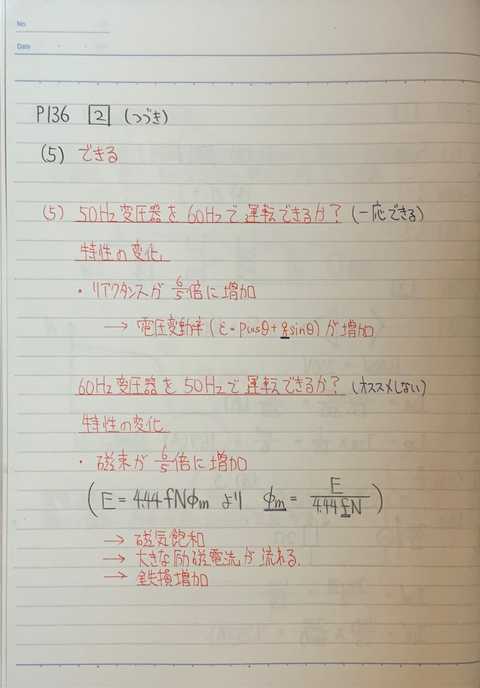 No.
Date
P136 2 (つづき)
(5) できる
(5) 50Hz変圧器を60Hzで運転できるか? (一応できる)
特性の変化
・リアクタンスが 6/5 倍に増加
→ 電圧変動率 (ε=pcosθ+qsinθ) が増加
60Hz変圧器を50Hzで運転できるか? (オススメしない)
特性の変化
・磁束が 6/5 倍に増加
(E = 4.44fNφm より φm = E/4.44fN)
→ 磁気飽和
→ 大きな励磁電流が流れる.
→ 鉄損増加